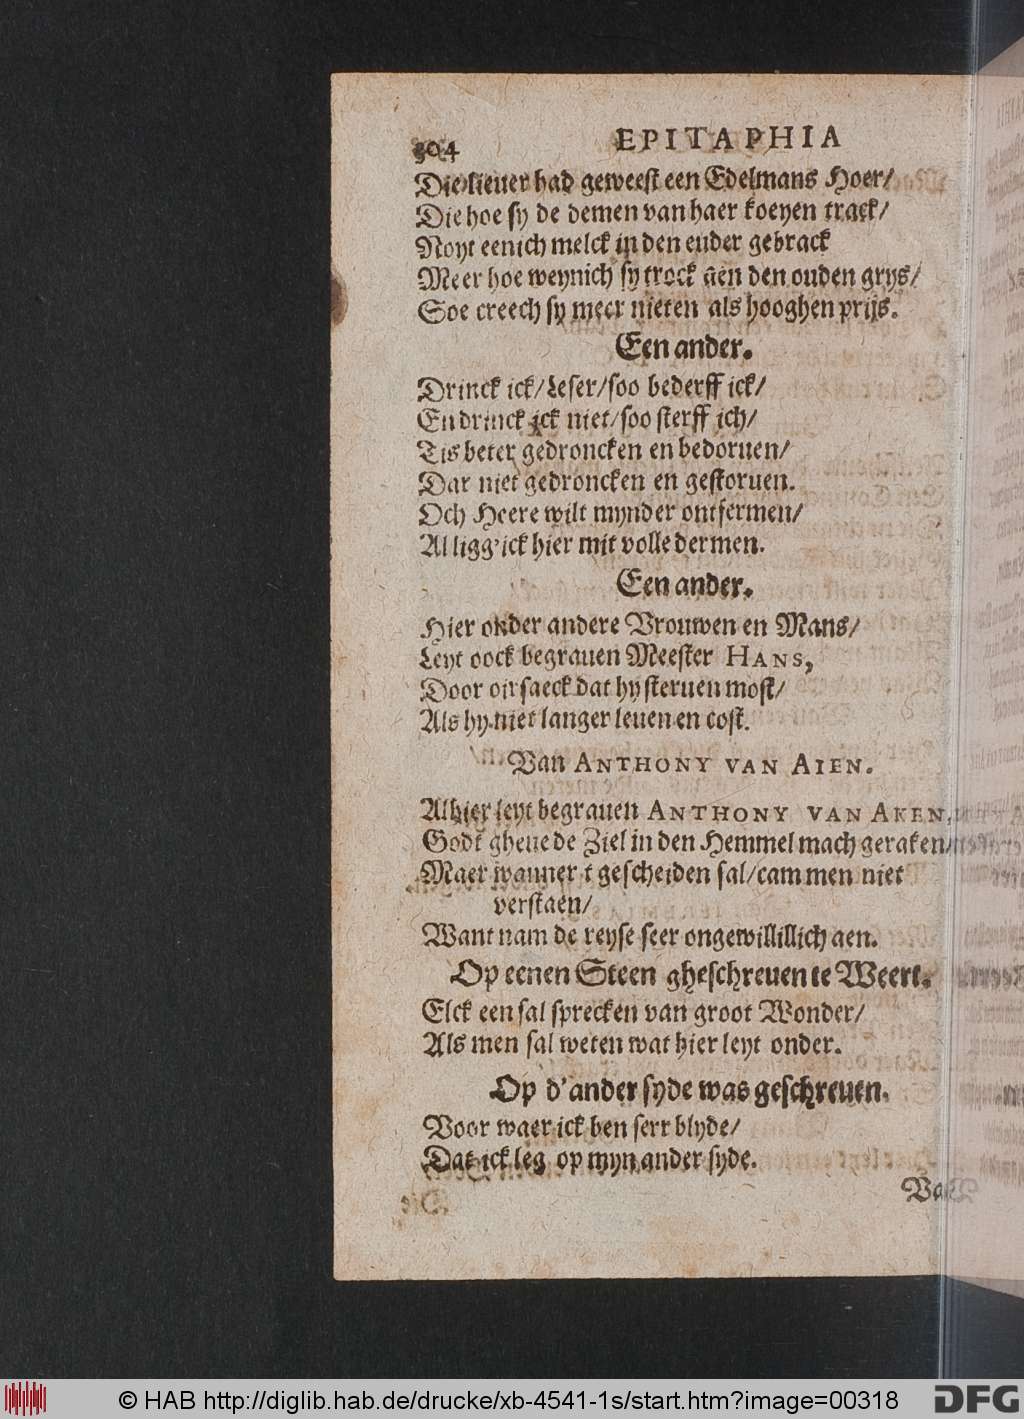 304 EPITAPHIA
Die liever had geweest een Edelmans Hoer/
Die hoe sy de demen van haer koeyen track/
Noyt eenich melck in den euder gebrack
Meer hoe weynich sy trock aen den ouden grys/
Soe creech sy meer nieten als hooghen prijs.
Een ander.
Drinck ick/ Leser/ soo bederff ick/
En drinck ick niet/ soo sterff ich/
Tis beter gedroncken en bedoruen/
Dar niet gedroncken en gestoruen.
Och Heere wilt mynder ontfermen/
Al ligg'ick hier mit volle dermen.
Een ander.
Hier onder andere Vrouwen en Mans/
Leyt oock begrauen Meester HANS,
Door oirsaeck dat hy steruen most/
Als hy niet langer leuen en cost.
Van ANTHONY VAN AIEN.
Alhier leyt begrauen ANTHONY VAN AKEN,
Godt gheue de Ziel in den Hemmel mach geraken/
Maer wanner t gescheiden sal/ cam men niet
verstaen/
Want nam de reyse seer ongewillillich aen.
Op eenen Steen gheschreuen te Weert.
Elck een sal sprecken van groot Wonder/
Als men sal weten wat hier leyt onder.
Op d'ander syde was geschreuen.
Voor waer ick ben serr blyde/
Dat ick leg op myn ander syde.
Van
© HAB http://diglib.hab.de/drucke/xb-4541-1s/start.htm?image=00318
DFG